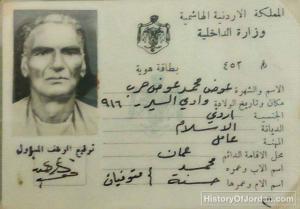 المملكة الاردنية الهاشمية
وزارة الداخلية
٤٥٢
بطاقة هوية
الاسم والشهرة عوض محمد عوض حرب
مكان وتاريخ الولادة وادي السير ٩١٦
الجنسية اردني
الديانة الاسلام
المهنة عامل
محل الاقامة الدائم عمان
اسم الاب وعمره محمد
اسم الام وعمرها حسنة } متوفيان
توقيع الموظف المسؤول
HistoryOfJordan.com